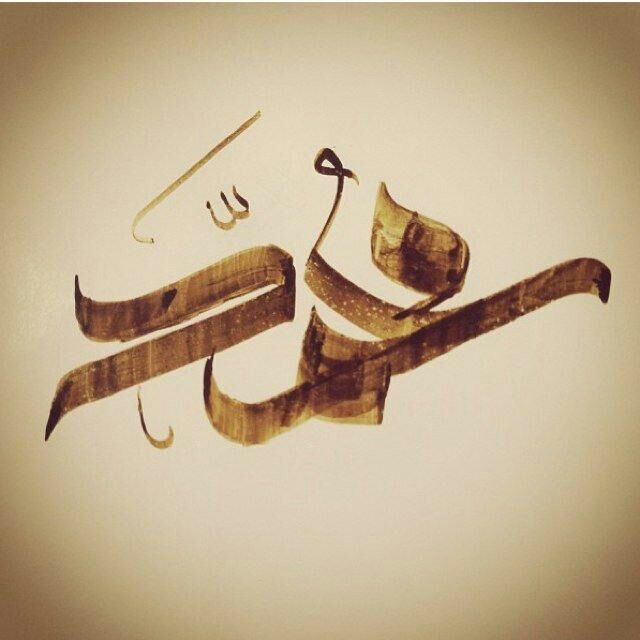 مُحمَّد